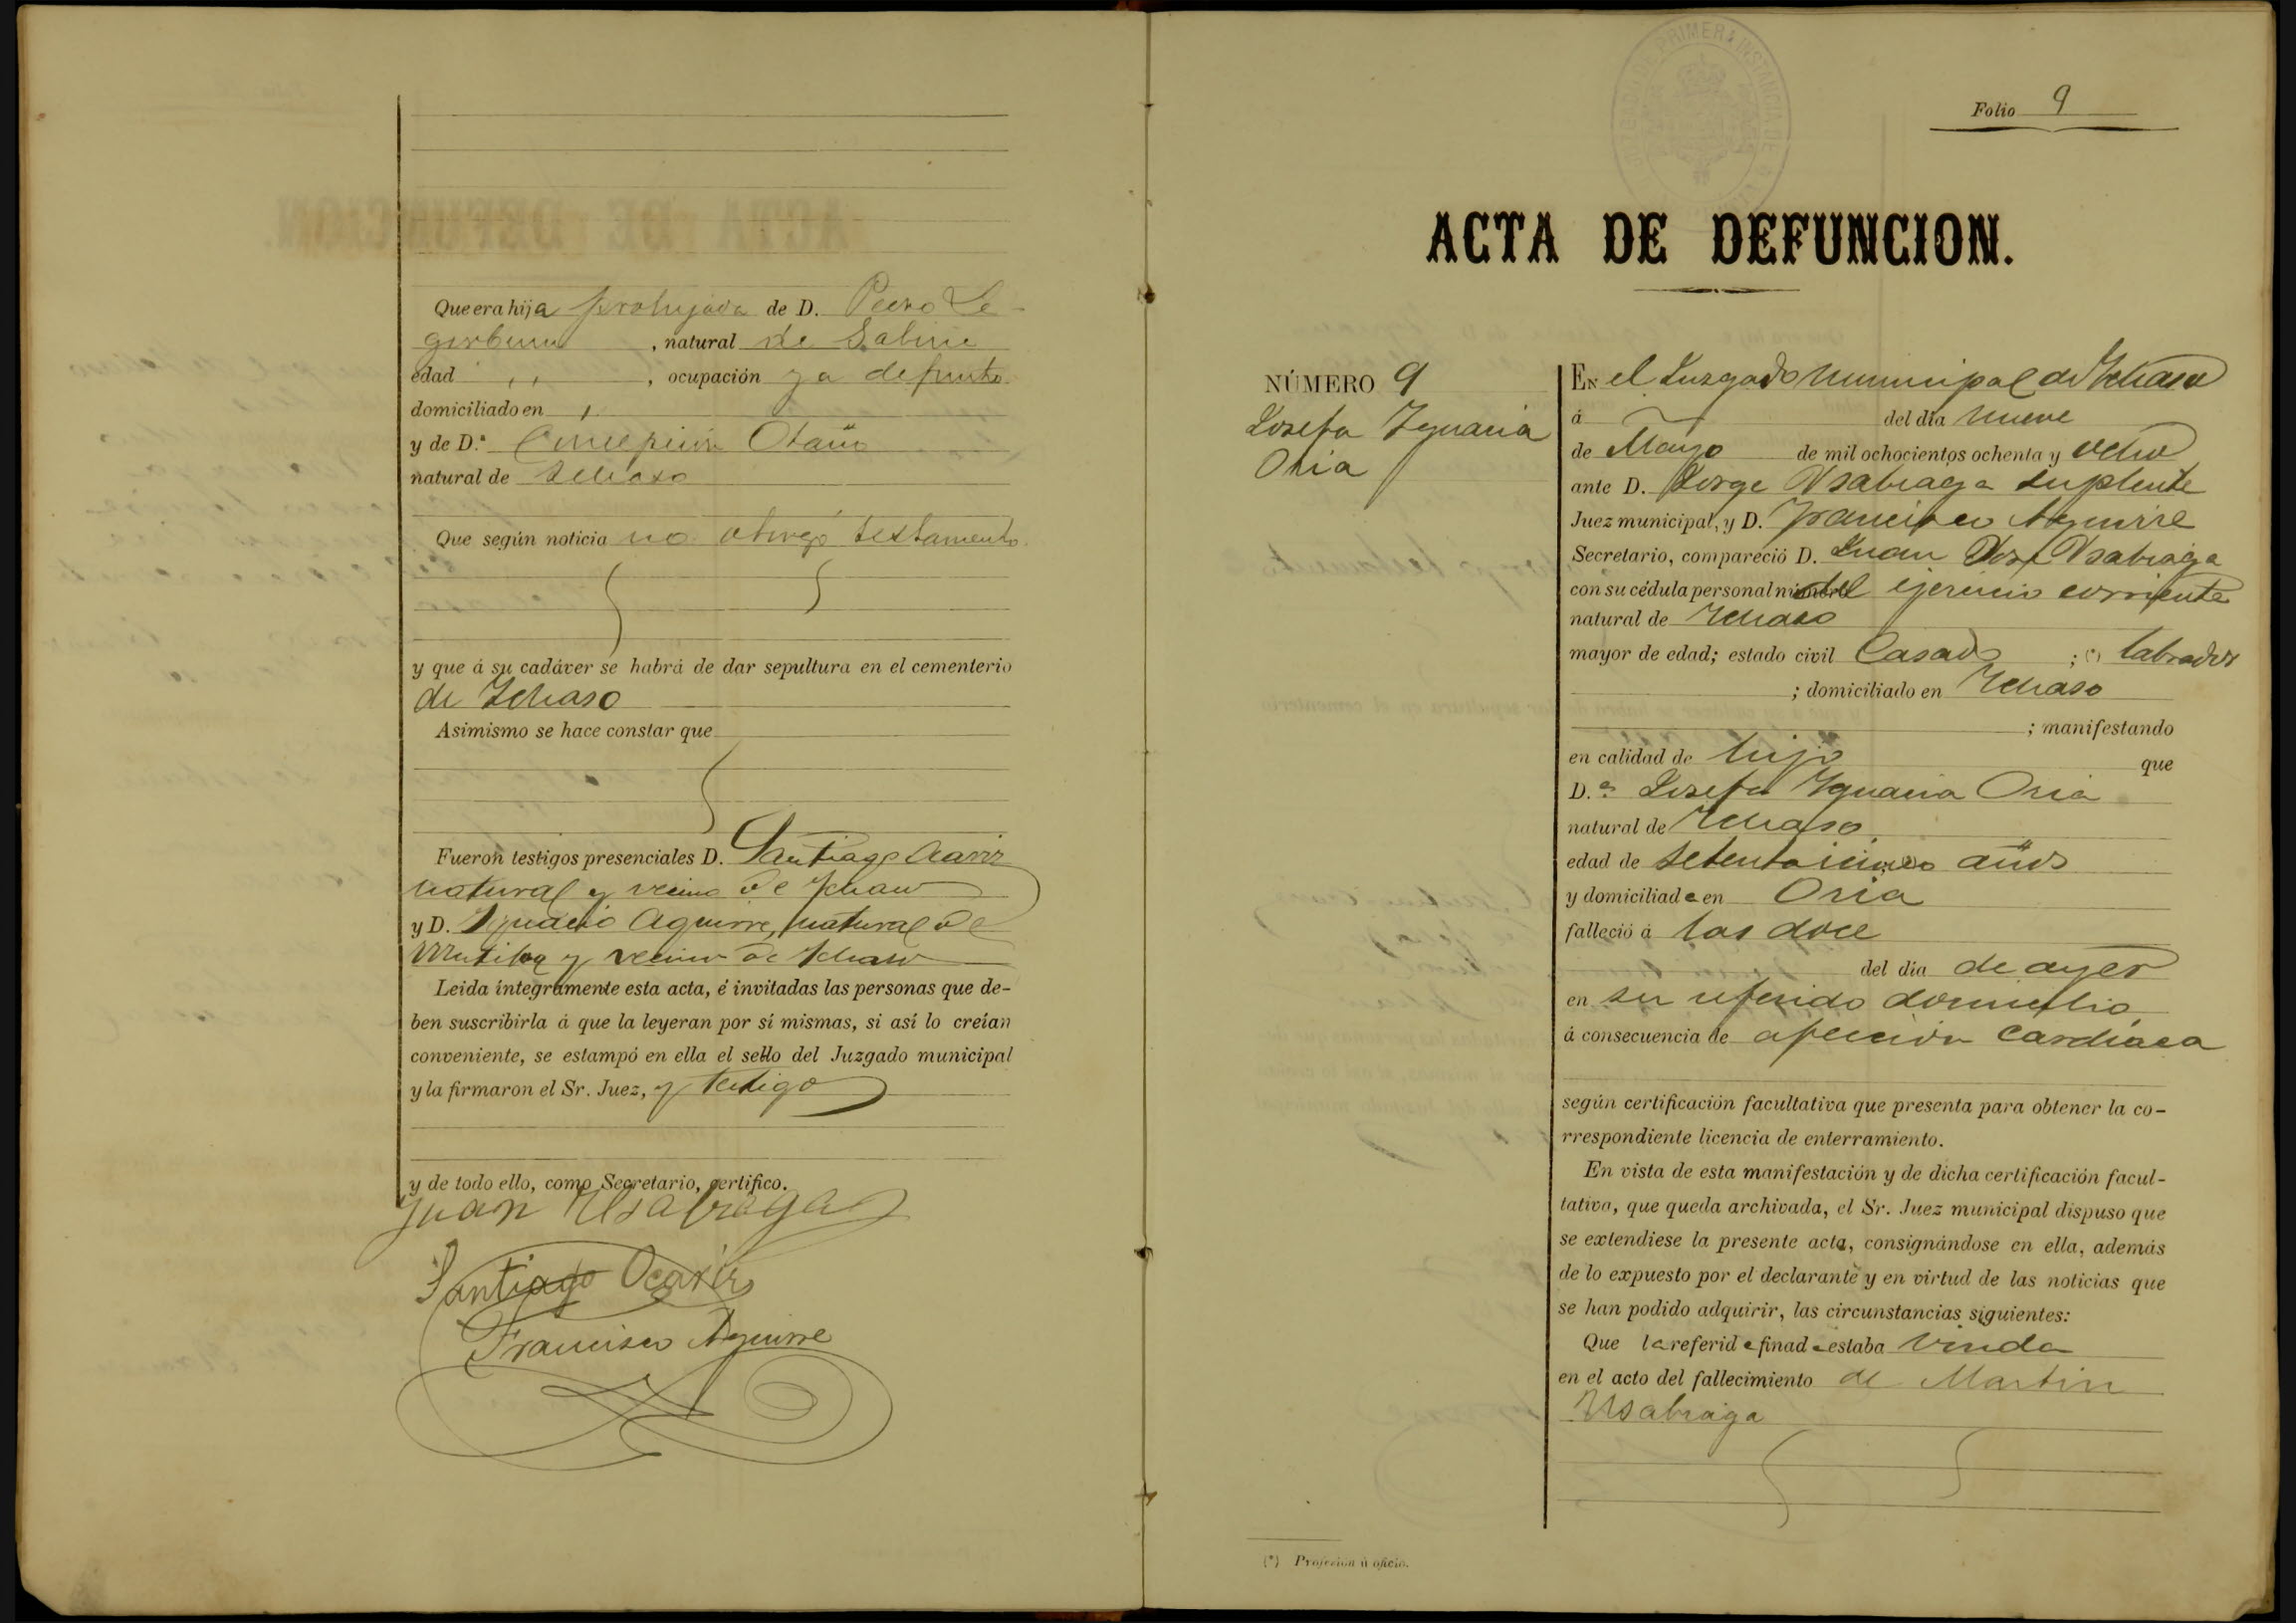 Que era hija prohijada de D. Pedro Le-
gorburu, natural de Salinie
edad ,, , ocupación ya defunto
domiciliado en ,
y de D.ª Concepcion Otaño
natural de Ichaso
Que según noticia no otorgó testamento
y que á su cadáver se habrá de dar sepultura en el cementerio
de Ichaso
Asimismo se hace constar que
Fueron testigos presenciales D. Santiago Ocariz
natural y vecino de Ichaso
y D. Ignacio Aguirre, natural de
Mutiloa y vecino de Ichaso
Leida íntegramente esta acta, é invitadas las personas que de-
ben suscribirla á que la leyeran por sí mismas, si así lo creían
conveniente, se estampó en ella el sello del Juzgado municipal
y la firmaron el Sr. Juez, y testigo
y de todo ello, como Secretario, certifico.
Juan Usabiaga
Santiago Ocariz
Francisco Aguirre
PRIMERA INSTANCIA DE
Folio 9
ACTA DE DEFUNCION.
NÚMERO 9
Josefa Ygnacia
Oria
EN el Juzgado Municipal de Ichaso
á del dia nueve
de Mayo de mil ochocientos ochenta y ocho
ante D. Jorge Usabiaga Suplente
Juez municipal, y D. Francisco Aguirre
Secretario, compareció D. Juan José Usabiaga
con su cédula personal número del ejercicio corriente
natural de Ichaso
mayor de edad; estado civil Casado ; (*) labrador
; domiciliado en Ichaso
; manifestando
en calidad de hijo que
D.ª Josefa Ygnacia Oria
natural de Ichaso
edad de setenta i cinco años
y domiciliada en Oria
falleció á las doce
del dia de ayer
en su referido domicilio
á consecuencia de afeccion cardiaca
según certificación facultativa que presenta para obtener la co-
rrespondiente licencia de enterramiento.
En vista de esta manifestación y de dicha certificación facul-
tativa, que queda archivada, el Sr. Juez municipal dispuso que
se extendiese la presente acta, consignándose en ella, además
de lo expuesto por el declarante y en virtud de las noticias que
se han podido adquirir, las circunstancias siguientes:
Que la referida finada estaba Viuda
en el acto del fallecimiento de Martin
Usabiaga
(*) Profesión ú oficio.